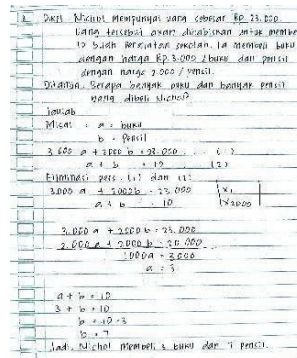 Diket Nichol mempunyai uang sebesar Rp. 23.000
Uang tersebut akan dihabiskan untuk membe
10 buah peralatan sekolah. Ia membeli buku
dengan harga Rp. 3.000 / buku dan pensil
dengan harga 2.000 / pensil.
Ditanya. Berapa banyak buku dan banyak pensil
yang dibeli Nichol?
Jawab
Misal : a = buku
b = Pensil
3.000 a + 2000 b = 23.000 ... (1)
a + b = 10 (2)
Eliminasi pers. (1) dan (2)
3.000 a + 2000 b = 23.000 | x1
a + b = 10 | x2000
3.000 a + 2000 b = 23.000
2.000 a + 2000 b = 20.000
1000 a = 3.000
a = 3
a + b = 10
3 + b = 10
b = 10 - 3
b = 7
Jadi, Nichol membeli 3 buku dan 7 pensil.